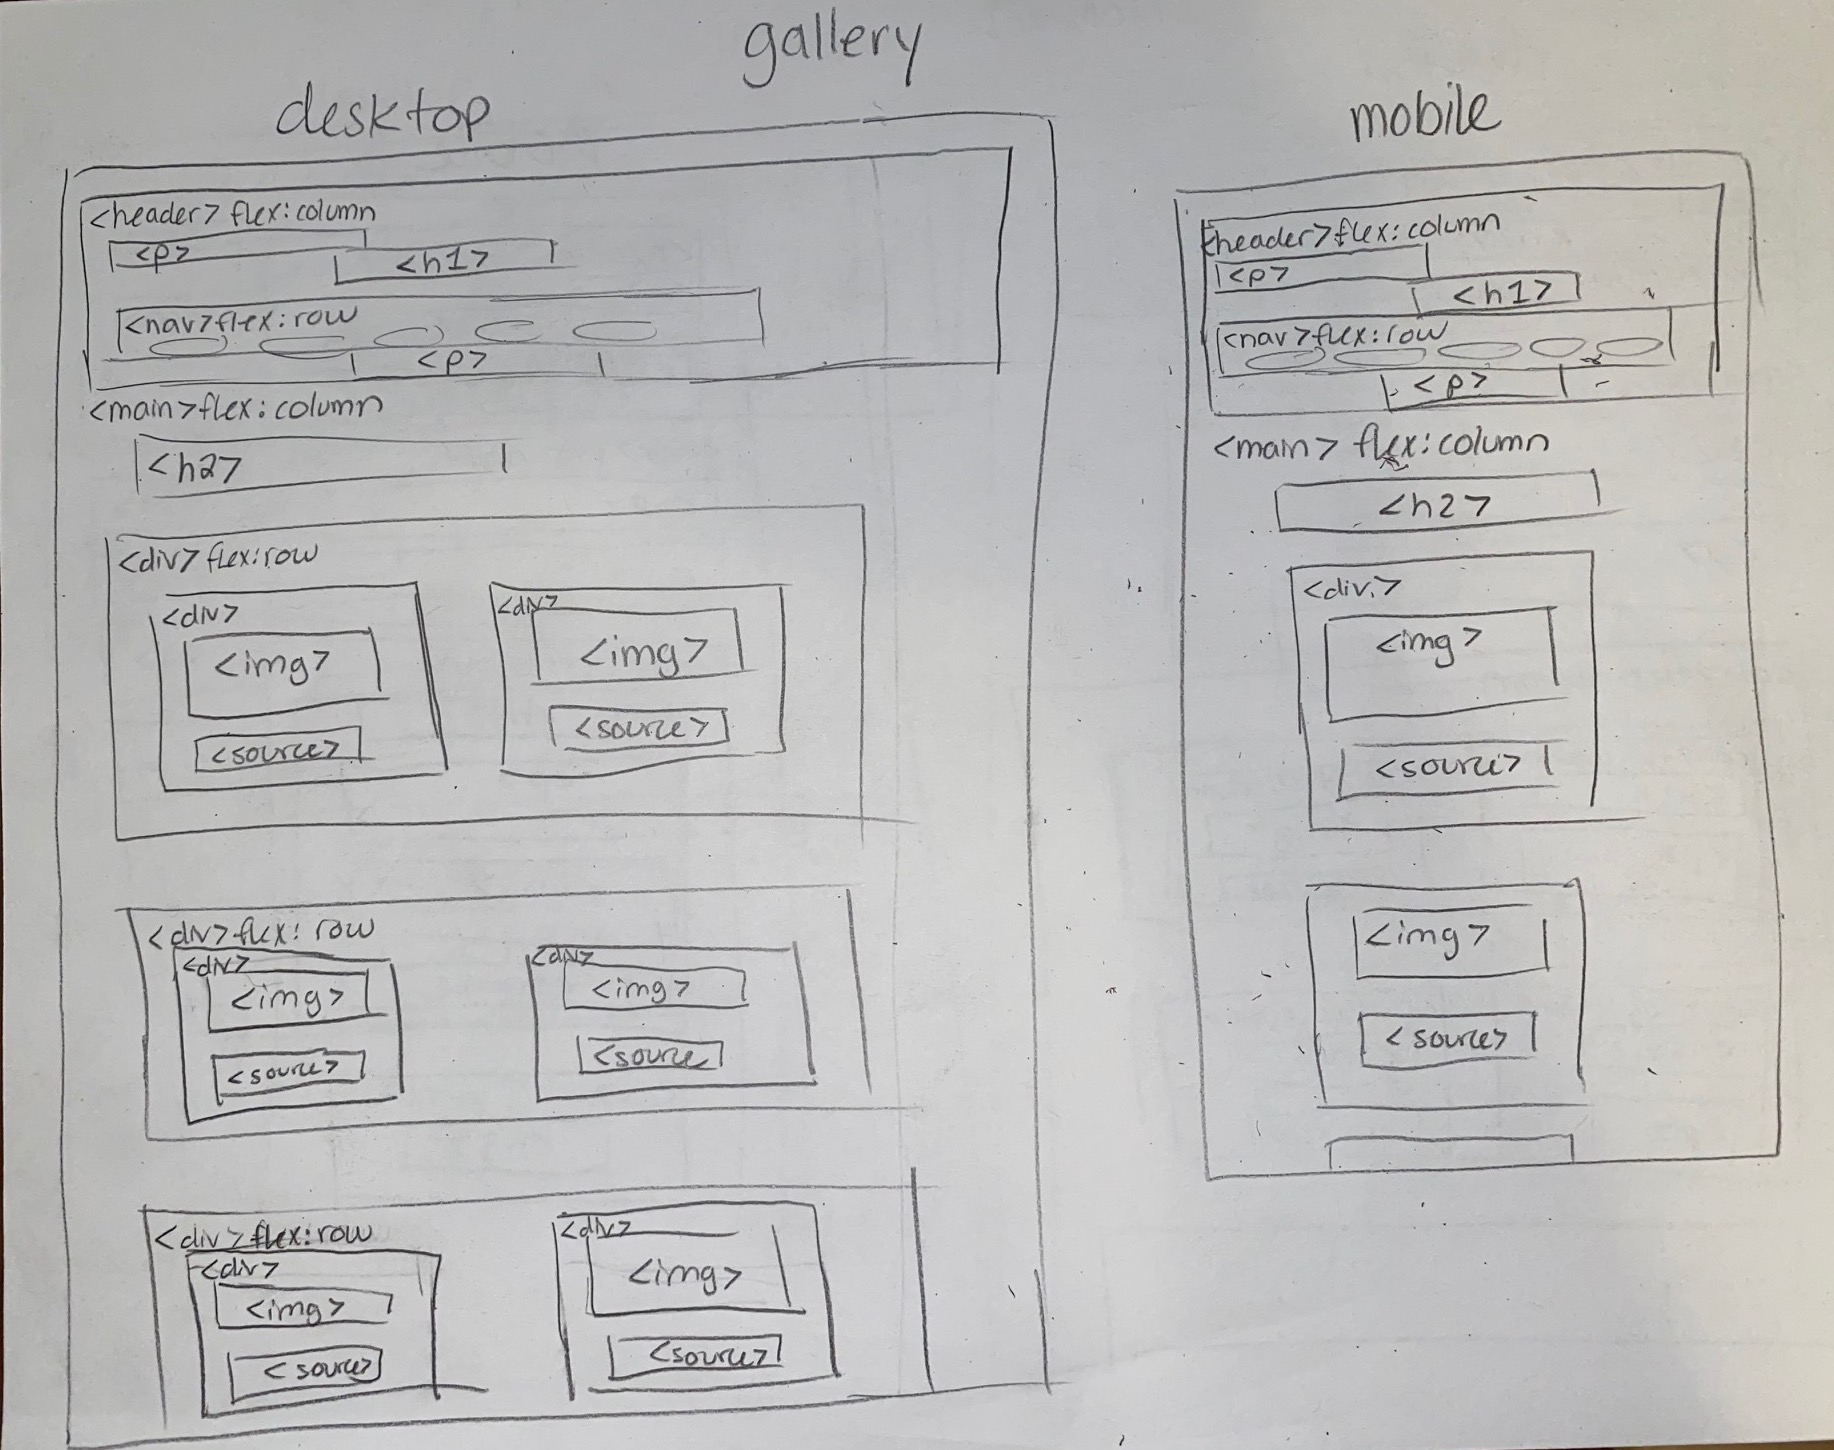 gallery
desktop
<header> flex:column
<p>
<h1>
<nav>flex:row
<p>
<main>flex:column
<h2>
<div> flex:row
<div>
<img>
<source>
<div>
<img>
<source>
<div>flex: row
<div>
<img>
<source>
<div>
<img>
<source
<div>flex:row
<div>
<img>
<source>
<div>
<img>
<source>
mobile
<header>flex:column
<p>
<h1>
<nav>flex:row
<p>
<main> flex:column
<h2>
<div>
<img>
<source>
<img>
<source>